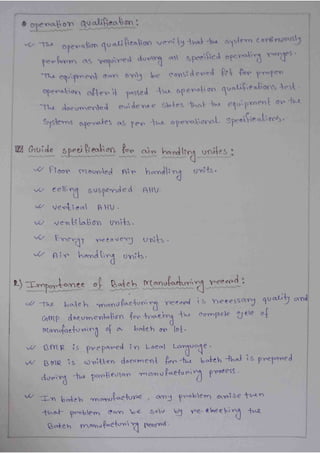 operation qualification:
The operation qualification verify that the system continuously
perform as required during all specified operating ranges.
The equipment can only be considered fit for proper
operation after it passed the operation qualifications test.
The documented evidence states that the equipment or the
systems operates as per the operational specifications.
Guide specification for air handling unites:
Floor mounted Air handling units.
ceiling suspended AHU.
vertical AHU.
ventilation units.
Energy recovery units.
Air handling units.
2) Importance of Batch Manufacturing record:
The batch manufacturing record is necessary quality and
GMP documentation for tracing the complete cycle of
Manufacturing of a batch or lot.
BMR is prepared in Local Language.
BMR is written document for the batch that is prepared
during the particular manufacturing process.
In batch manufacture, any problem arise then
that problem can be solv by re-checking the
Batch manufacturing record.